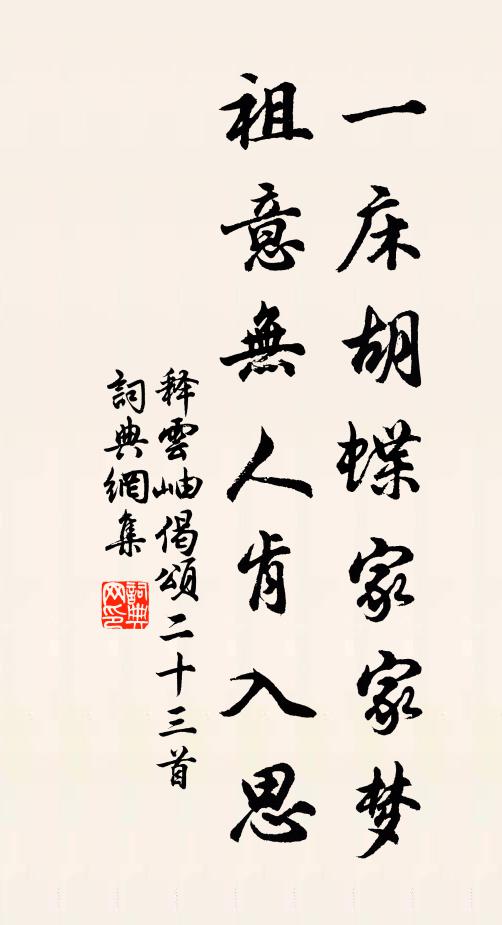 一床胡蝶家家梦
祖意無人肯入思
释雲岫偈頌二十三首
詞典網集
詞典网印